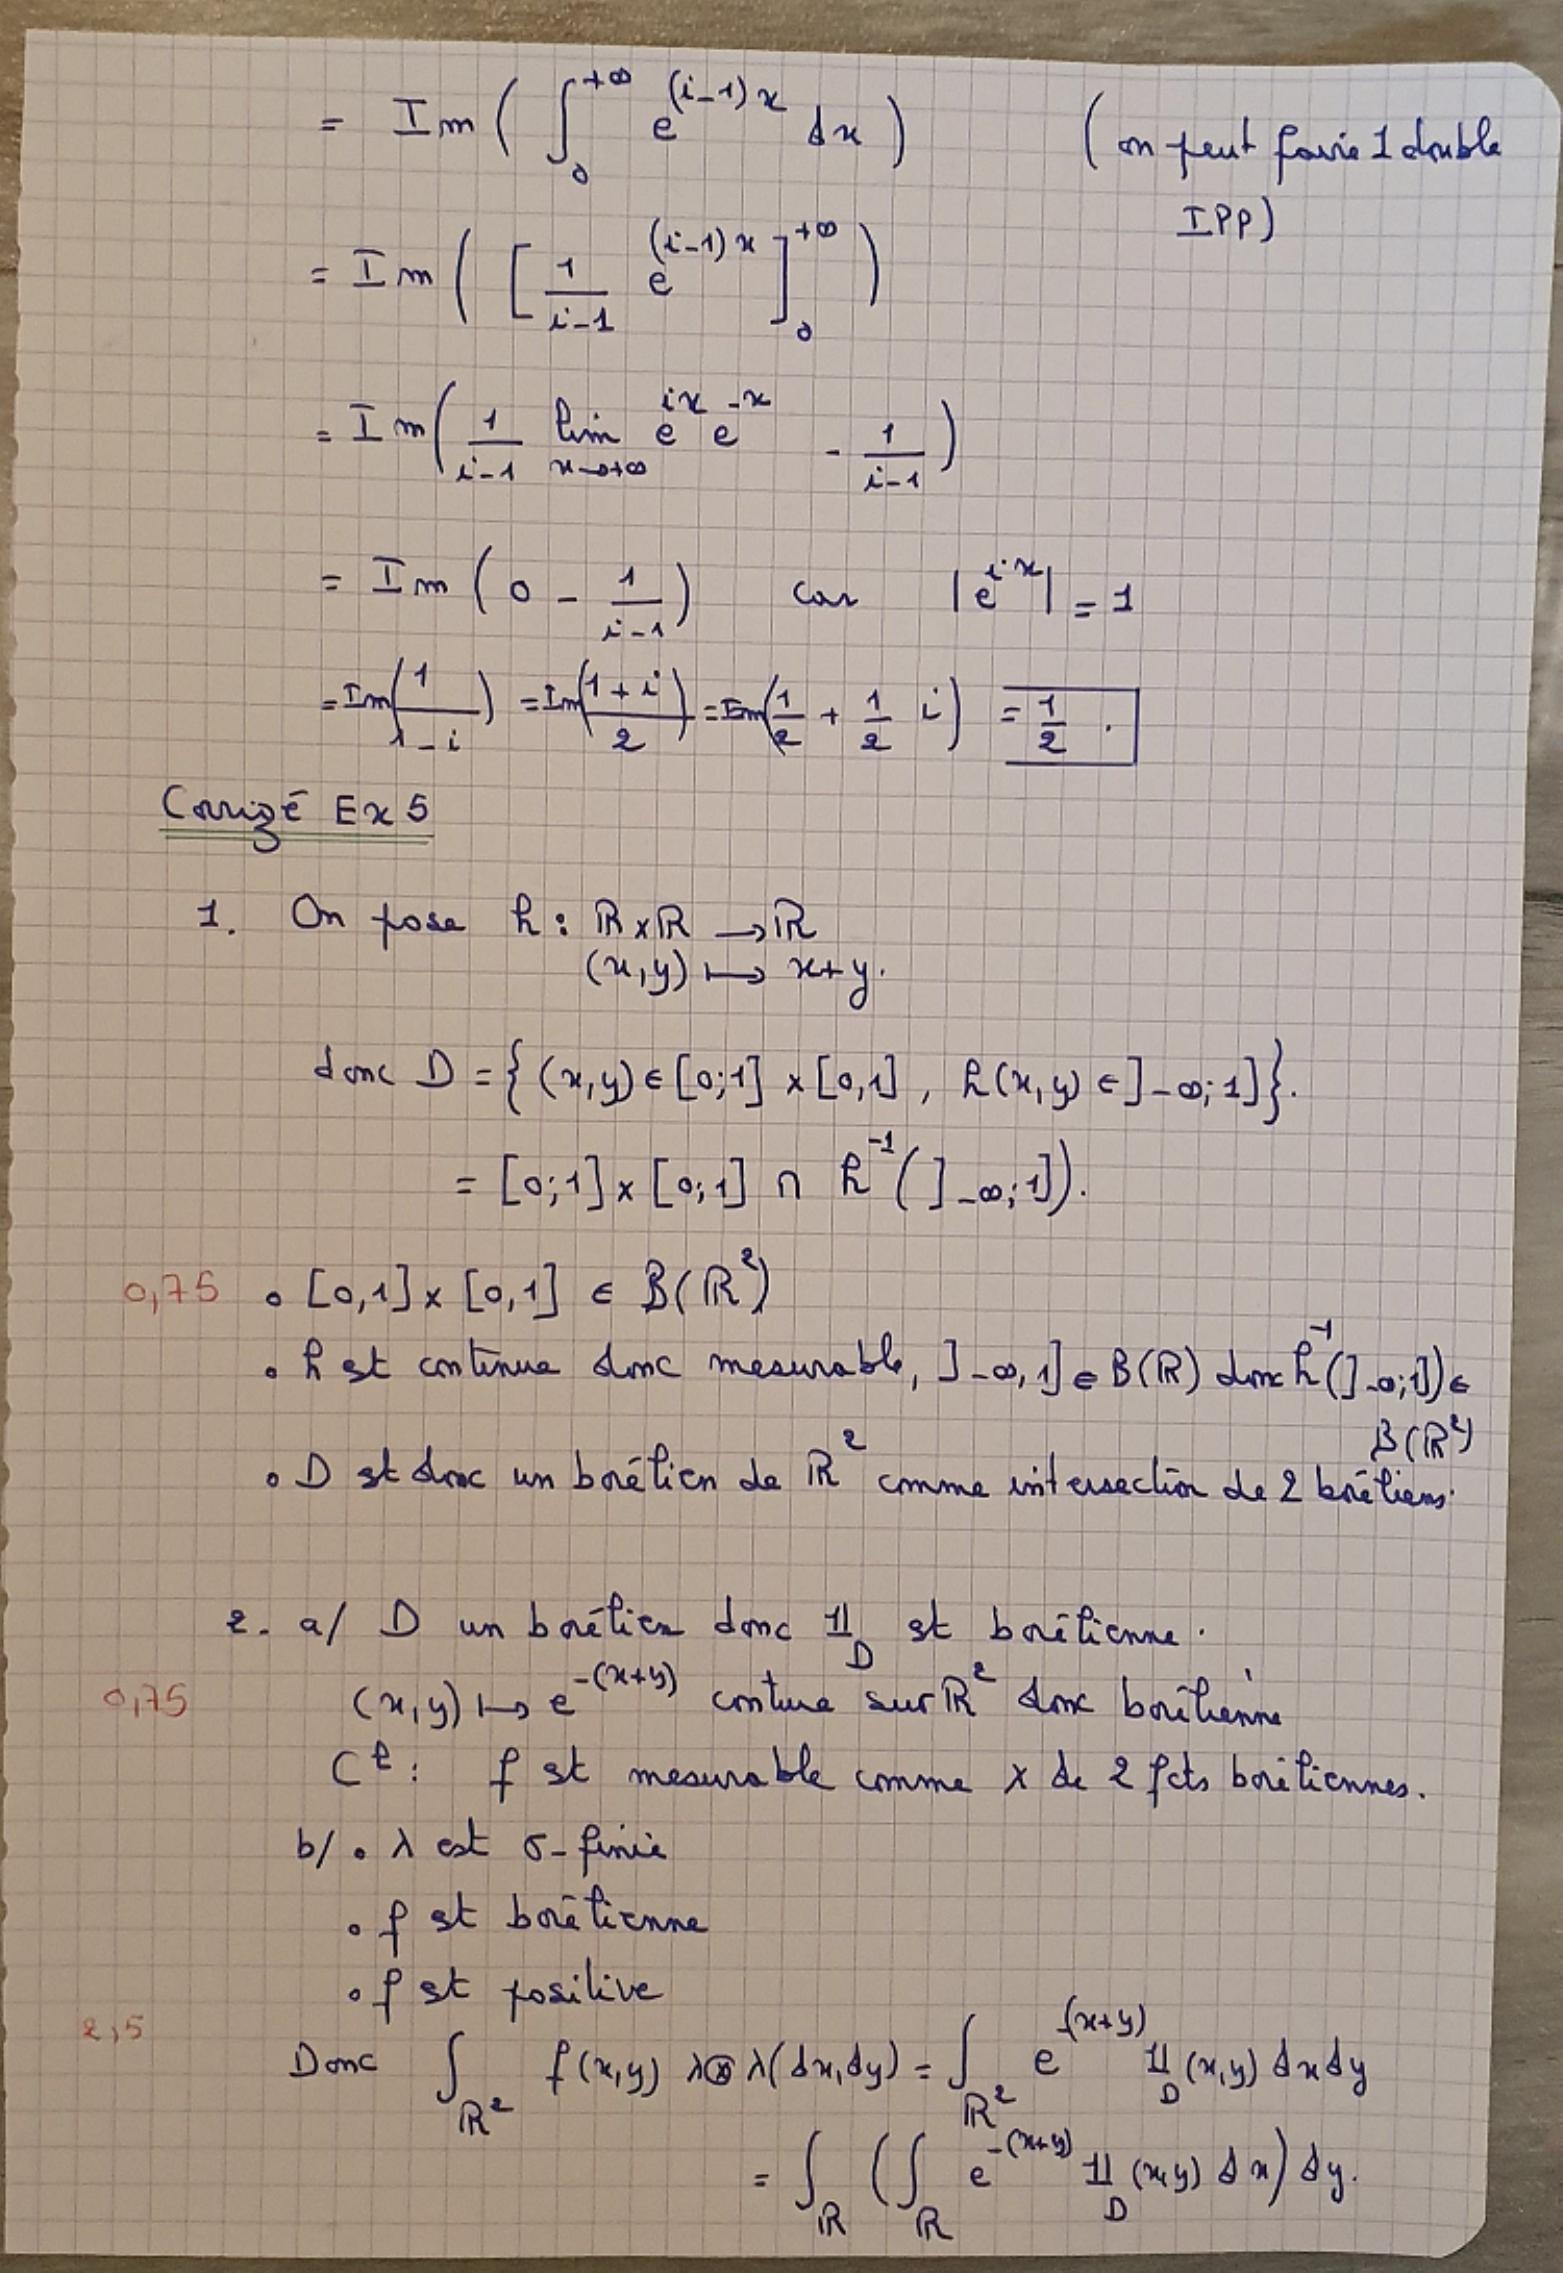 = Im ( ∫₀^{+∞} e^{(i-1)x} dx ) (on peut faire 1 double
IPP)
= Im ( [ 1/(i-1) e^{(i-1)x} ]₀^{+∞} )
= Im ( 1/(i-1) lim_{x→+∞} e^{ix} e^{-x} - 1/(i-1) )
= Im ( 0 - 1/(i-1) ) car |e^{ix}| = 1
= Im( 1/(1-i) ) = Im( (1+i)/2 ) = Im( 1/2 + 1/2 i ) = 1/2 .
Corrigé Ex 5
1. On pose h : ℝ×ℝ → ℝ
(x,y) ↦ x+y.
donc D = { (x,y) ∈ [0;1] × [0,1] , h(x,y) ∈ ]-∞;1] }.
= [0;1] × [0;1] ∩ h^{-1}( ]-∞;1] ).
0,75 • [0,1] × [0,1] ∈ B(ℝ²)
• h est continue donc mesurable, ]-∞,1] ∈ B(ℝ) donc h^{-1}(]-∞;1]) ∈
B(ℝ²)
• D est donc un borélien de ℝ² comme intersection de 2 boréliens.
2. a/ D un borélien donc 𝟙_D est borélienne.
0,75 (x,y) ↦ e^{-(x+y)} continue sur ℝ² donc borélienne
C^l : f est mesurable comme × de 2 fcts boréliennes.
b/ • λ est σ-finie
• f est borélienne
• f est positive
2,5
Donc ∫_{ℝ²} f(x,y) λ⊗λ(dx,dy) = ∫_{ℝ²} e^{-(x+y)} 𝟙_D (x,y) dx dy
= ∫_ℝ ( ∫_ℝ e^{-(x+y)} 𝟙_D (x,y) dx ) dy.